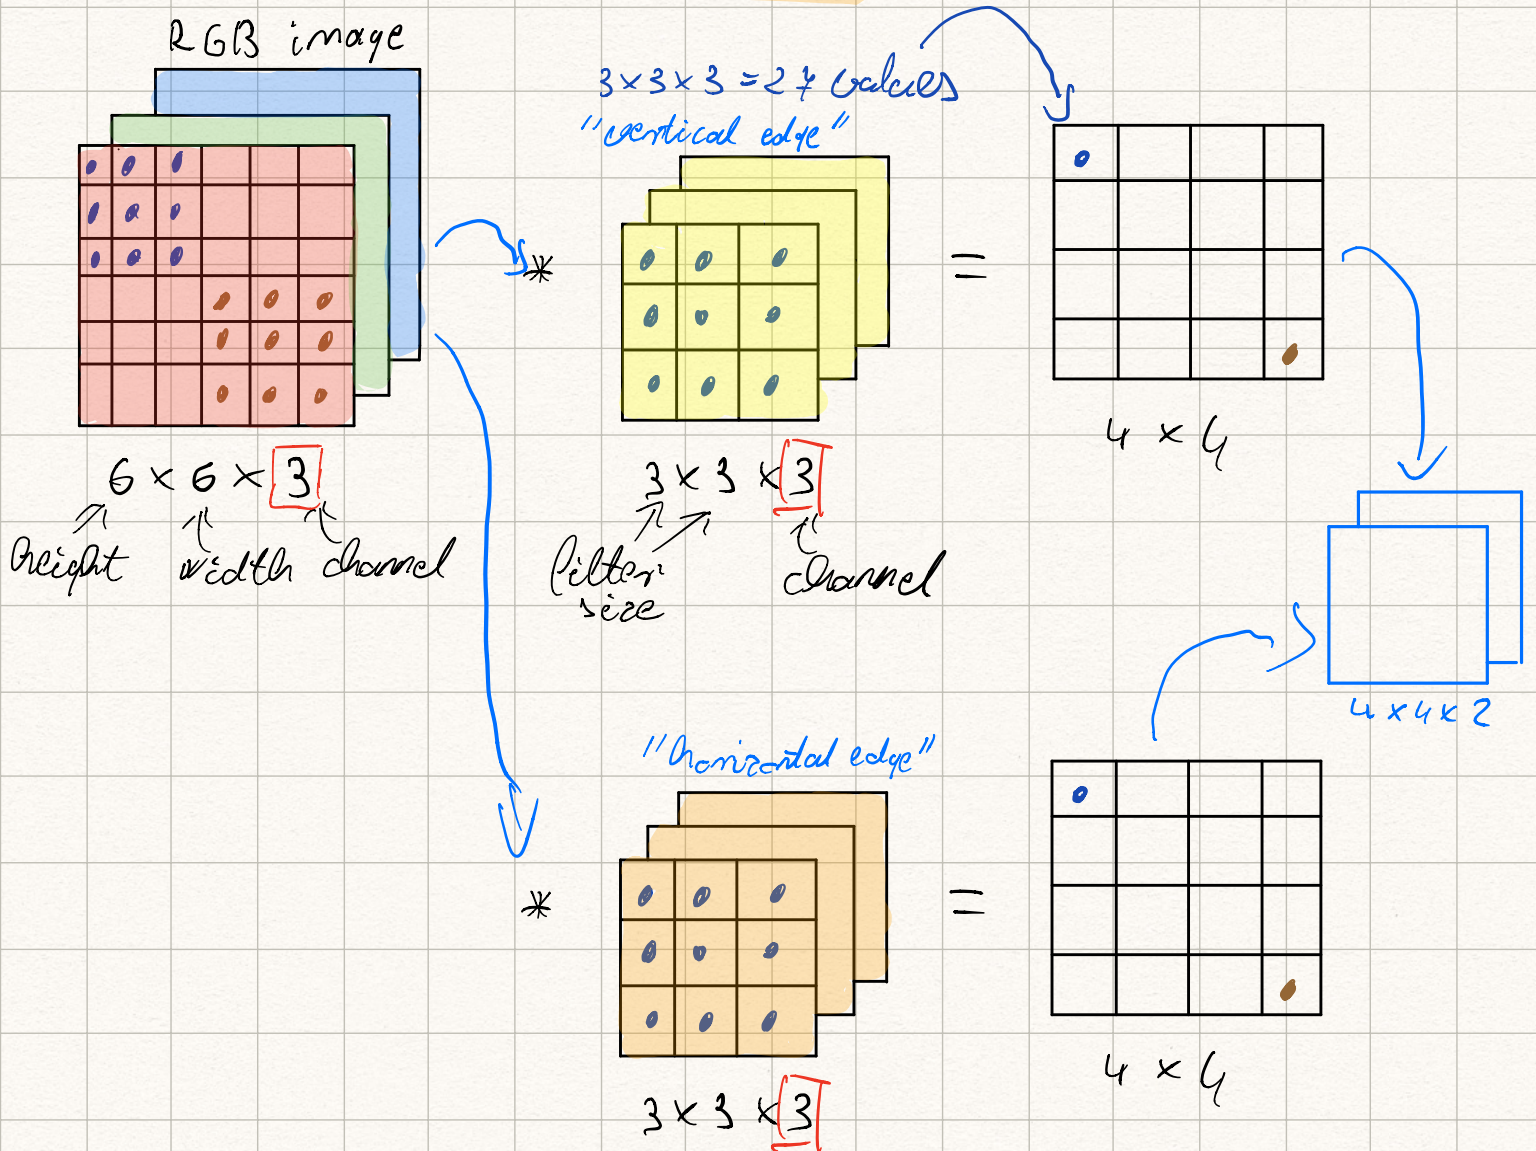 RGB image
3 × 3 × 3 = 27 values
"vertical edge"
*
=
4 × 4
6 × 6 × 3
height width channel
3 × 3 × 3
filter
size
channel
4 × 4 × 2
"horizontal edge"
*
=
4 × 4
3 × 3 × 3